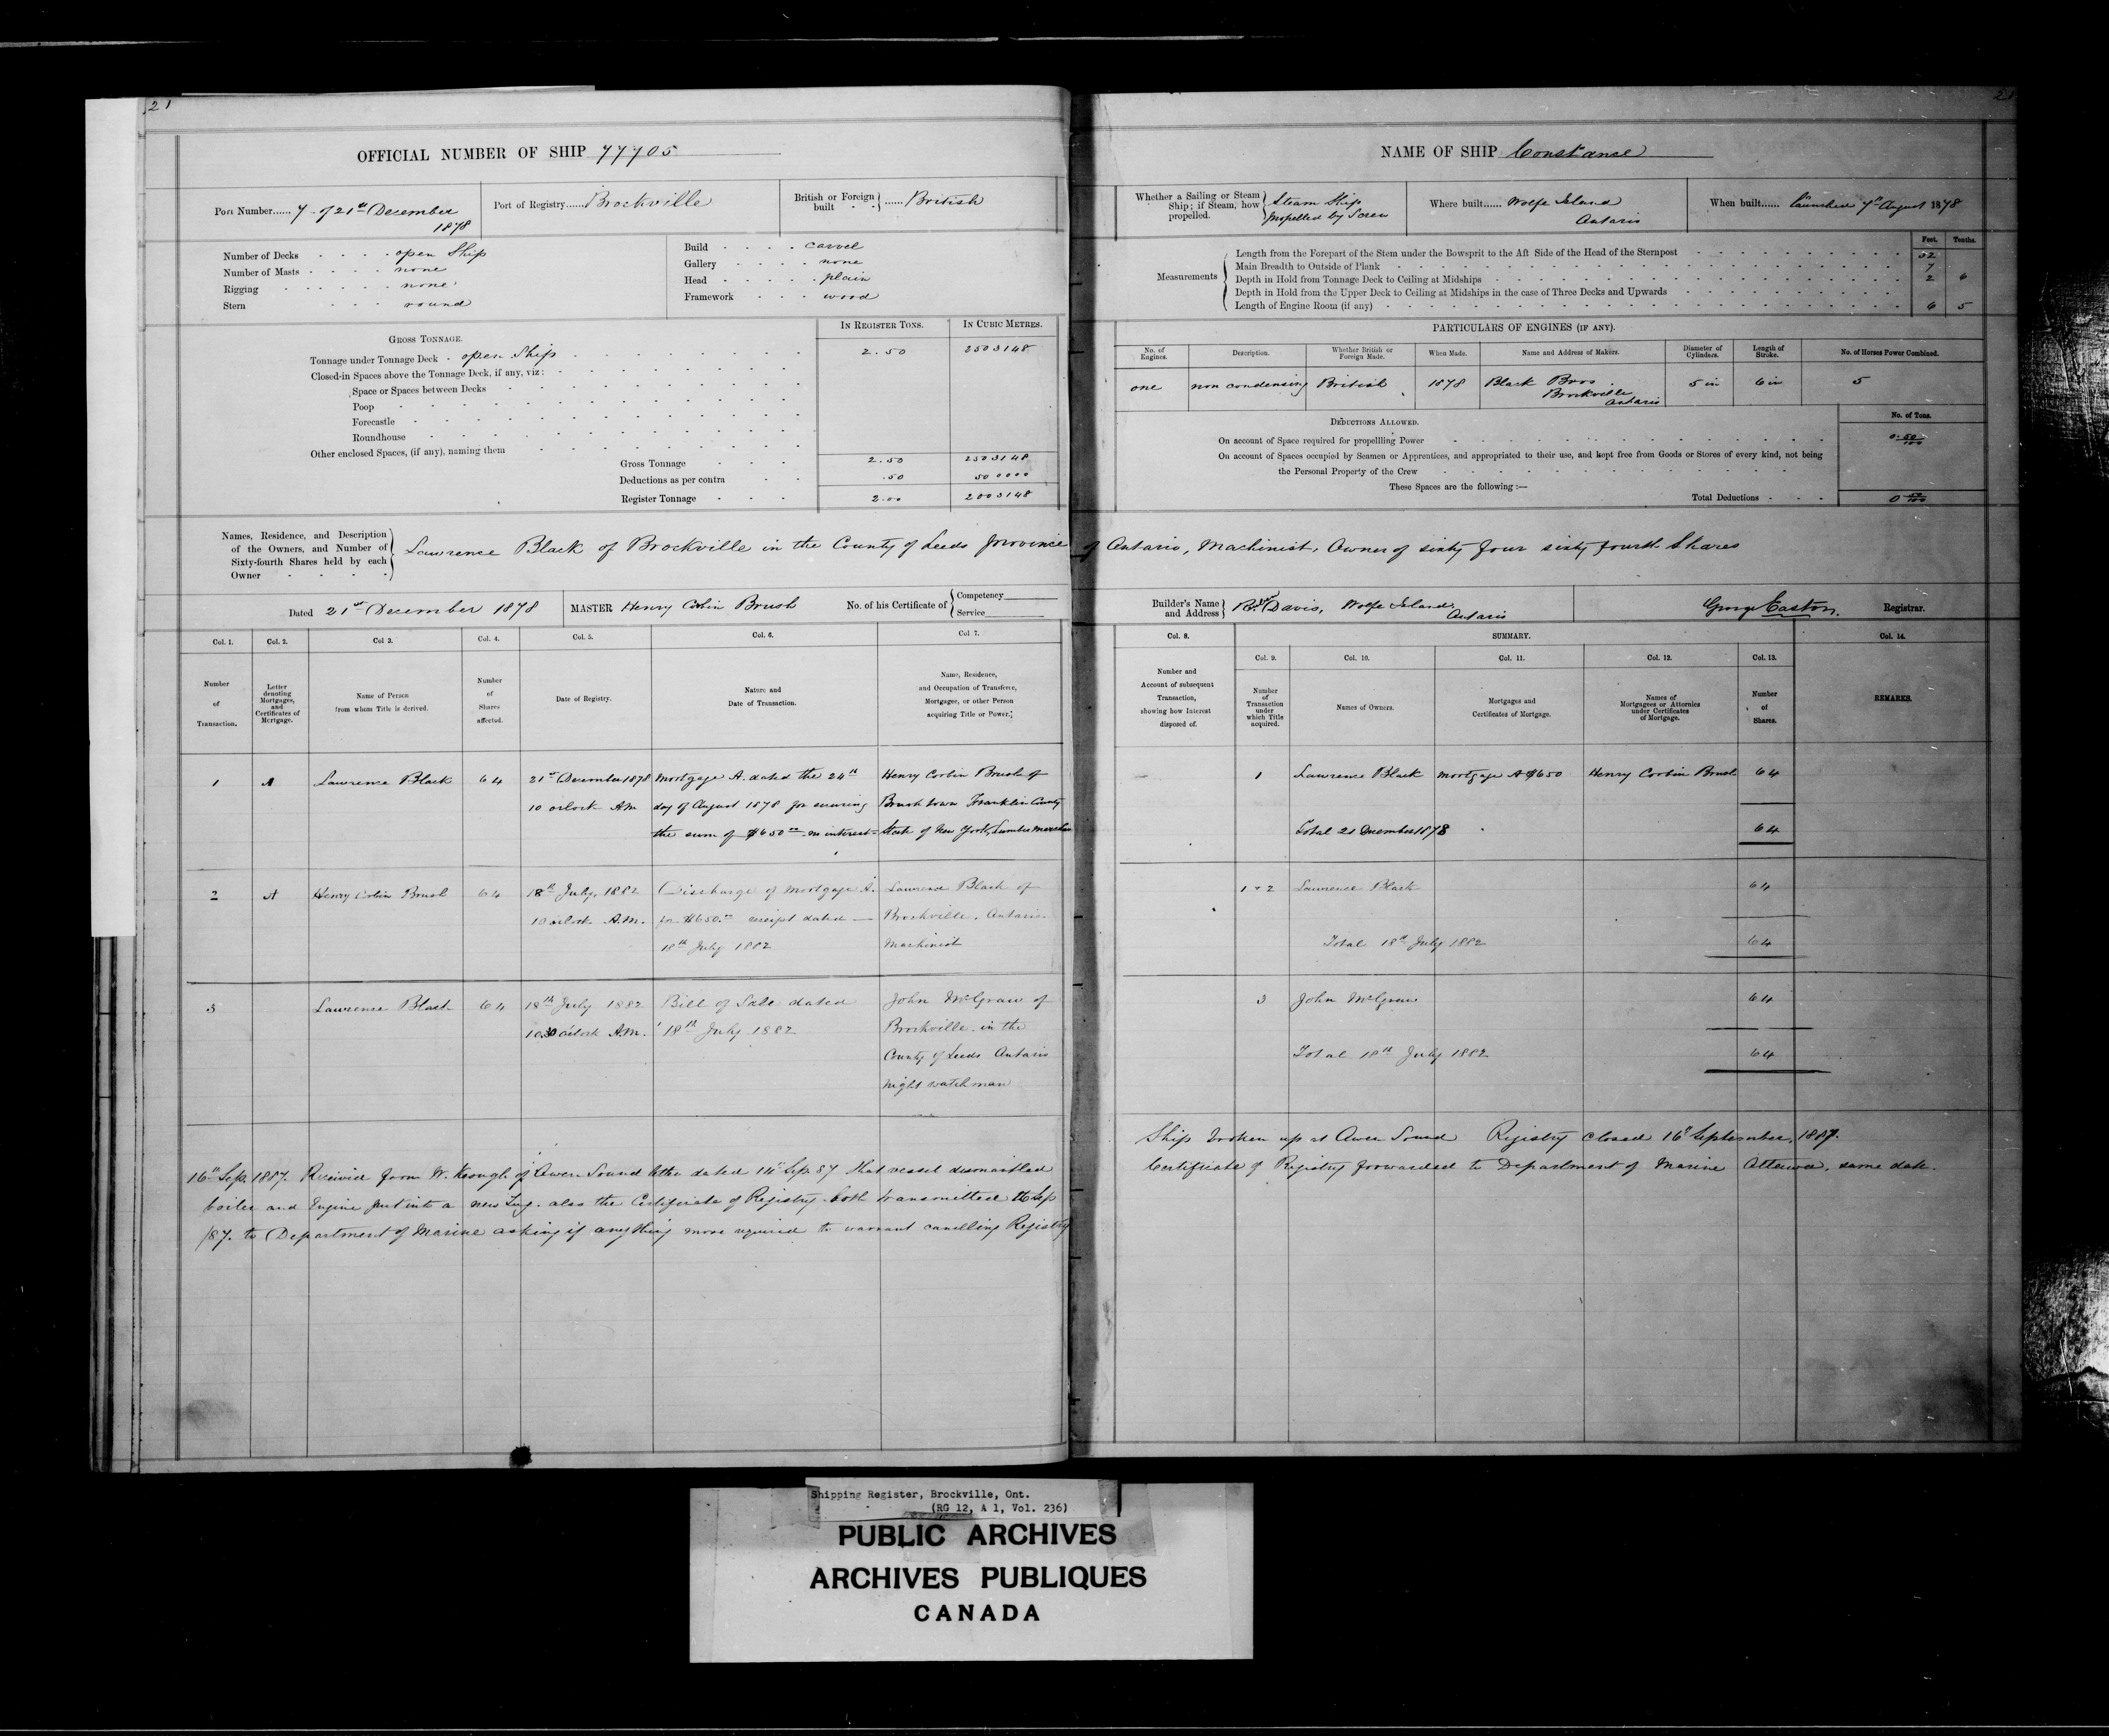 21
OFFICIAL NUMBER OF SHIP 77705
Port Number...... 7 of 21st December 1878
Port of Registry...... Brockville
British or Foreign built ...... British
Number of Decks open Ship
Number of Masts none
Rigging none
Stern round
Build carvel
Gallery none
Head plain
Framework wood
GROSS TONNAGE.
IN REGISTER TONS.
IN CUBIC METRES.
Tonnage under Tonnage Deck open Ship 2.50 2503148
Closed-in Spaces above the Tonnage Deck, if any, viz:
Space or Spaces between Decks
Poop
Forecastle
Roundhouse
Other enclosed Spaces, (if any), naming them
Gross Tonnage 2.50 2503148
Deductions as per contra .50 500000
Register Tonnage 2.00 2003148
Names, Residence, and Description
of the Owners, and Number of
Sixty-fourth Shares held by each
Owner
Lawrence Black of Brockville in the County of Leeds province of Ontario, Machinist, Owner of sixty four sixty fourth Shares
Dated 21st December 1878
MASTER Henry Corbin Brush
No. of his Certificate of Competency
Service
Col. 1. Col. 2. Col 3. Col. 4. Col. 5. Col. 6. Col 7.
Number of Transaction.
Letter denoting Mortgages, and Certificates of Mortgage.
Name of Person from whom Title is derived.
Number of Shares affected.
Date of Registry.
Nature and Date of Transaction.
Name, Residence, and Occupation of Transferee, Mortgagee, or other Person acquiring Title or Power.
1 A Lawrence Black 64 21st December 1878 Mortgage A. dated the 24th Henry Corbin Brush of
10 oclock AM day of August 1878 for securing Brush town Franklin County
the sum of $650.00 no interest State of New York, Lumber Merchant
2 A Henry Corbin Brush 64 18th July, 1882 Discharge of Mortgage A. Lawrence Black of
10 oclock A.M. for $650.00 receipt dated Brockville, Ontario
18th July 1882 Machinist
3 Lawrence Black 64 18th July 1882 Bill of Sale dated John McGraw of
10.30 oclock A.M. 18th July 1882 Brockville in the
County of Leeds Ontario
night watchman
16th Sep. 1887. Received from W. Keough of Owen Sound letter dated 14th Sep. 87 that vessel dismantled
boiler and Engine put into a new Tug. also the Certificate of Registry. both transmitted 16 Sep
/87. to Department of Marine asking if anything more required to warrant cancelling Registry
21
NAME OF SHIP Constance
Whether a Sailing or Steam Ship; if Steam, how propelled.
Steam Ship
Propelled by Screw
Where built...... Wolfe Island
Ontario
When built...... launched 7th August 1878
Feet. Tenths.
Measurements
Length from the Forepart of the Stem under the Bowsprit to the Aft Side of the Head of the Sternpost 32
Main Breadth to Outside of Plank 7
Depth in Hold from Tonnage Deck to Ceiling at Midships 2 6
Depth in Hold from the Upper Deck to Ceiling at Midships in the case of Three Decks and Upwards
Length of Engine Room (if any) 6 5
PARTICULARS OF ENGINES (IF ANY).
No. of Engines. Description. Whether British or Foreign Made. When Made. Name and Address of Makers. Diameter of Cylinders. Length of Stroke. No. of Horses Power Combined.
one non condensing British 1878 Black Bros. 5 in 6 in 5
Brockville
Ontario
DEDUCTIONS ALLOWED.
No. of Tons.
On account of Space required for propellling Power 0.50/100
On account of Spaces occupied by Seamen or Apprentices, and appropriated to their use, and kept free from Goods or Stores of every kind, not being
the Personal Property of the Crew
These Spaces are the following:—
Total Deductions 0 50/100
Builder's Name and Address
Davis, Wolfe Island
Ontario
George Easton. Registrar.
Col. 8. SUMMARY. Col. 14.
Col. 9. Col. 10. Col. 11. Col. 12. Col. 13.
Number and Account of subsequent Transaction, showing how Interest disposed of.
Number of Transaction under which Title acquired.
Names of Owners.
Mortgages and Certificates of Mortgage.
Names of Mortgagees or Attornies under Certificates of Mortgage.
Number of Shares.
REMARKS.
1 Lawrence Black Mortgage A $650 Henry Corbin Brush 64
Total 21 December 1878 64
1 + 2 Lawrence Black 64
Total 18th July 1882 64
3 John McGraw 64
Total 18th July 1882 64
Ship broken up at Owen Sound Registry closed 16th September, 1887.
Certificate of Registry forwarded to Department of Marine Ottawa, same date.
Shipping Register, Brockville, Ont.
(RG 12, A 1, Vol. 236)
PUBLIC ARCHIVES
ARCHIVES PUBLIQUES
CANADA